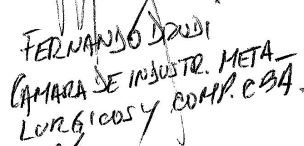 FERNANDO DRUDI
CAMARA DE INDUSTR. META_
LURGICOS Y COMP. CBA.